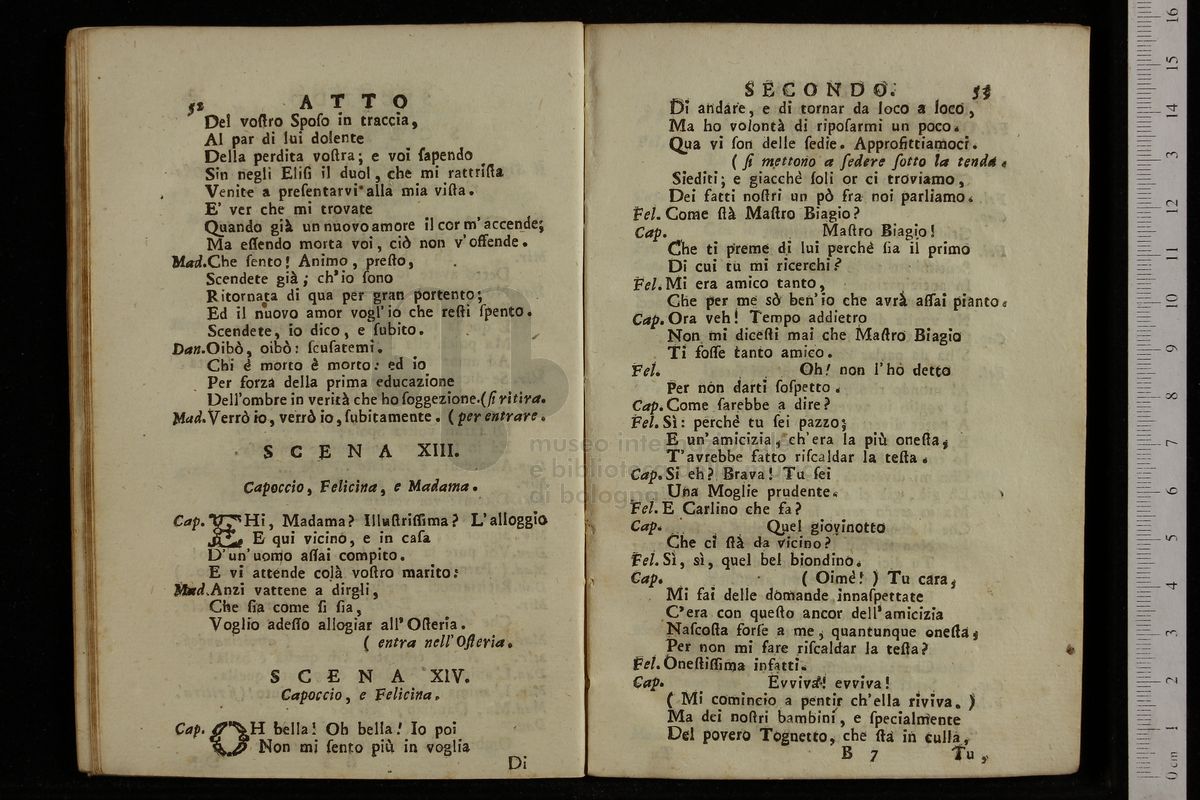 52 ATTO
Del voſtro Spoſo in traccia,
Al par di lui dolente
Della perdita voſtra; e voi ſapendo
Sin negli Eliſi il duol, che mi rattriſta
Venite a preſentarvi alla mia viſta.
E' ver che mi trovate
Quando già un nuovo amore il cor m'accende;
Ma eſſendo morta voi, ciò non v'offende.
Mad. Che ſento! Animo, preſto,
Scendete già; ch'io ſono
Ritornata di qua per gran portento;
Ed il nuovo amor vogl'io che reſti ſpento.
Scendete, io dico, e ſubito.
Dan. Oibò, oibò: ſcuſatemi.
Chi è morto è morto: ed io
Per forza della prima educazione
Dell'ombre in verità che ho ſoggezione. (ſi ritira.
Mad. Verrò io, verrò io, ſubitamente. (per entrare.
SCENA XIII.
Capoccio, Felicina, e Madama.
Cap. EHi, Madama? Illuſtriſſima? L'alloggio
E qui vicino, e in caſa
D'un'uomo aſſai compito.
E vi attende colà voſtro marito:
Mad. Anzi vattene a dirgli,
Che ſia come ſi ſia,
Voglio adeſſo allogiar all'Oſteria.
( entra nell'Oſteria.
SCENA XIV.
Capoccio, e Felicina.
Cap. OH bella! Oh bella! Io poi
Non mi ſento più in voglia
Di
SECONDO. 53
Di andare, e di tornar da loco a loco,
Ma ho volontà di ripoſarmi un poco.
Qua vi ſon delle ſedie. Approfittiamoci.
( ſi mettono a ſedere ſotto la tenda.
Siediti; e giacchè ſoli or ci troviamo,
Dei fatti noſtri un pò fra noi parliamo.
Fel. Come ſtà Maſtro Biagio?
Cap. Maſtro Biagio!
Che ti preme di lui perchè ſia il primo
Di cui tu mi ricerchi?
Fel. Mi era amico tanto,
Che per me sò ben'io che avrà aſſai pianto.
Cap. Ora veh! Tempo addietro
Non mi diceſti mai che Maſtro Biagio
Ti foſſe tanto amico.
Fel. Oh! non l'ho detto
Per non darti ſoſpetto.
Cap. Come ſarebbe a dire?
Fel. Sì: perchè tu ſei pazzo;
E un'amicizia, ch'era la più oneſta,
T'avrebbe fatto riſcaldar la teſta.
Cap. Si eh? Brava! Tu ſei
Una Moglie prudente.
Fel. E Carlino che fa?
Cap. Quel giovinotto
Che ci ſtà da vicino?
Fel. Sì, sì, quel bel biondino.
Cap. ( Oimè! ) Tu cara,
Mi fai delle domande innaſpettate
C'era con queſto ancor dell'amicizia
Naſcoſta forſe a me, quantunque oneſta,
Per non mi fare riſcaldar la teſta?
Fel. Oneſtiſſima infatti.
Cap. Evviva! evviva!
( Mi comincio a pentir ch'ella riviva. )
Ma dei noſtri bambini, e ſpecialmente
Del povero Tognetto, che ſta in culla,
B 7 Tu,